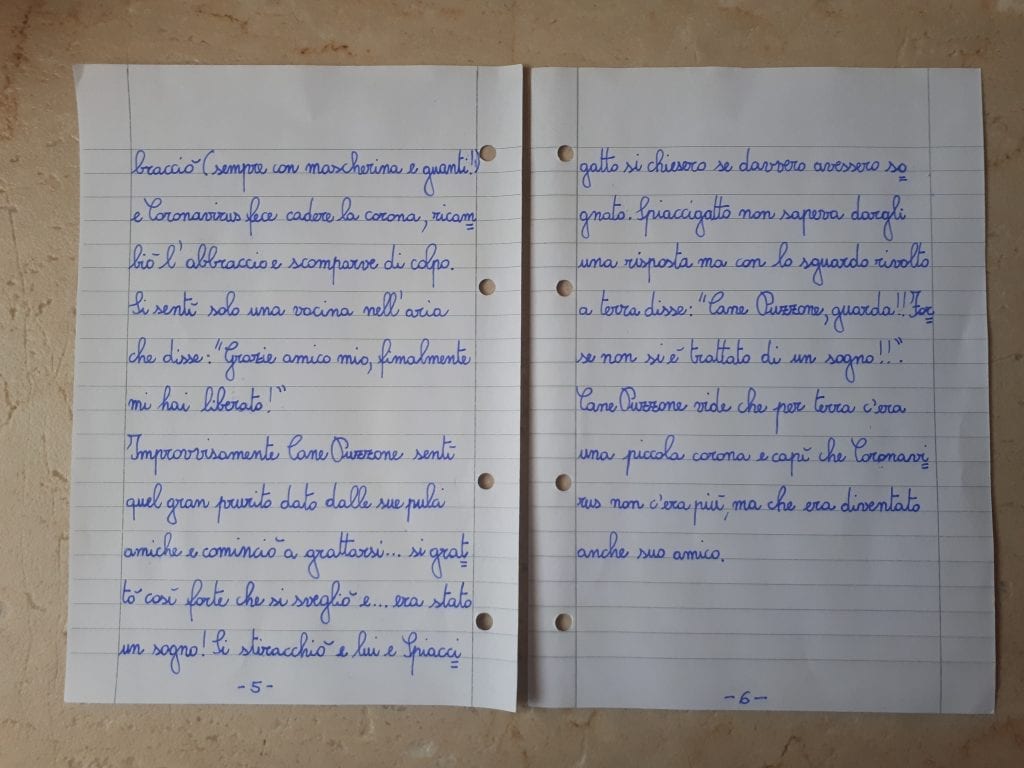 bracciò (sempre con mascherina e guanti!)
e Coronavirus fece cadere la corona, ricam=
biò l'abbraccio e scomparve di colpo.
Si sentì solo una vocina nell'aria
che disse: "Grazie amico mio, finalmente
mi hai liberato!"
Improvvisamente Cane Puzzone sentì
quel gran prurito dato dalle sue pulci
amiche e cominciò a grattarsi... si grat=
tò così forte che si svegliò e... era stato
un sogno! Si stiracchiò e lui e Spiacci=
-5-
gatto si chiesero se davvero avessero so=
gnato. Spiaccigatto non sapeva dargli
una risposta ma con lo sguardo rivolto
a terra disse: "Cane Puzzone, guarda!! For=
se non si è trattato di un sogno!!".
Cane Puzzone vide che per terra c'era
una piccola corona e capì che Coronavi=
rus non c'era più, ma che era diventato
anche suo amico.
-6-